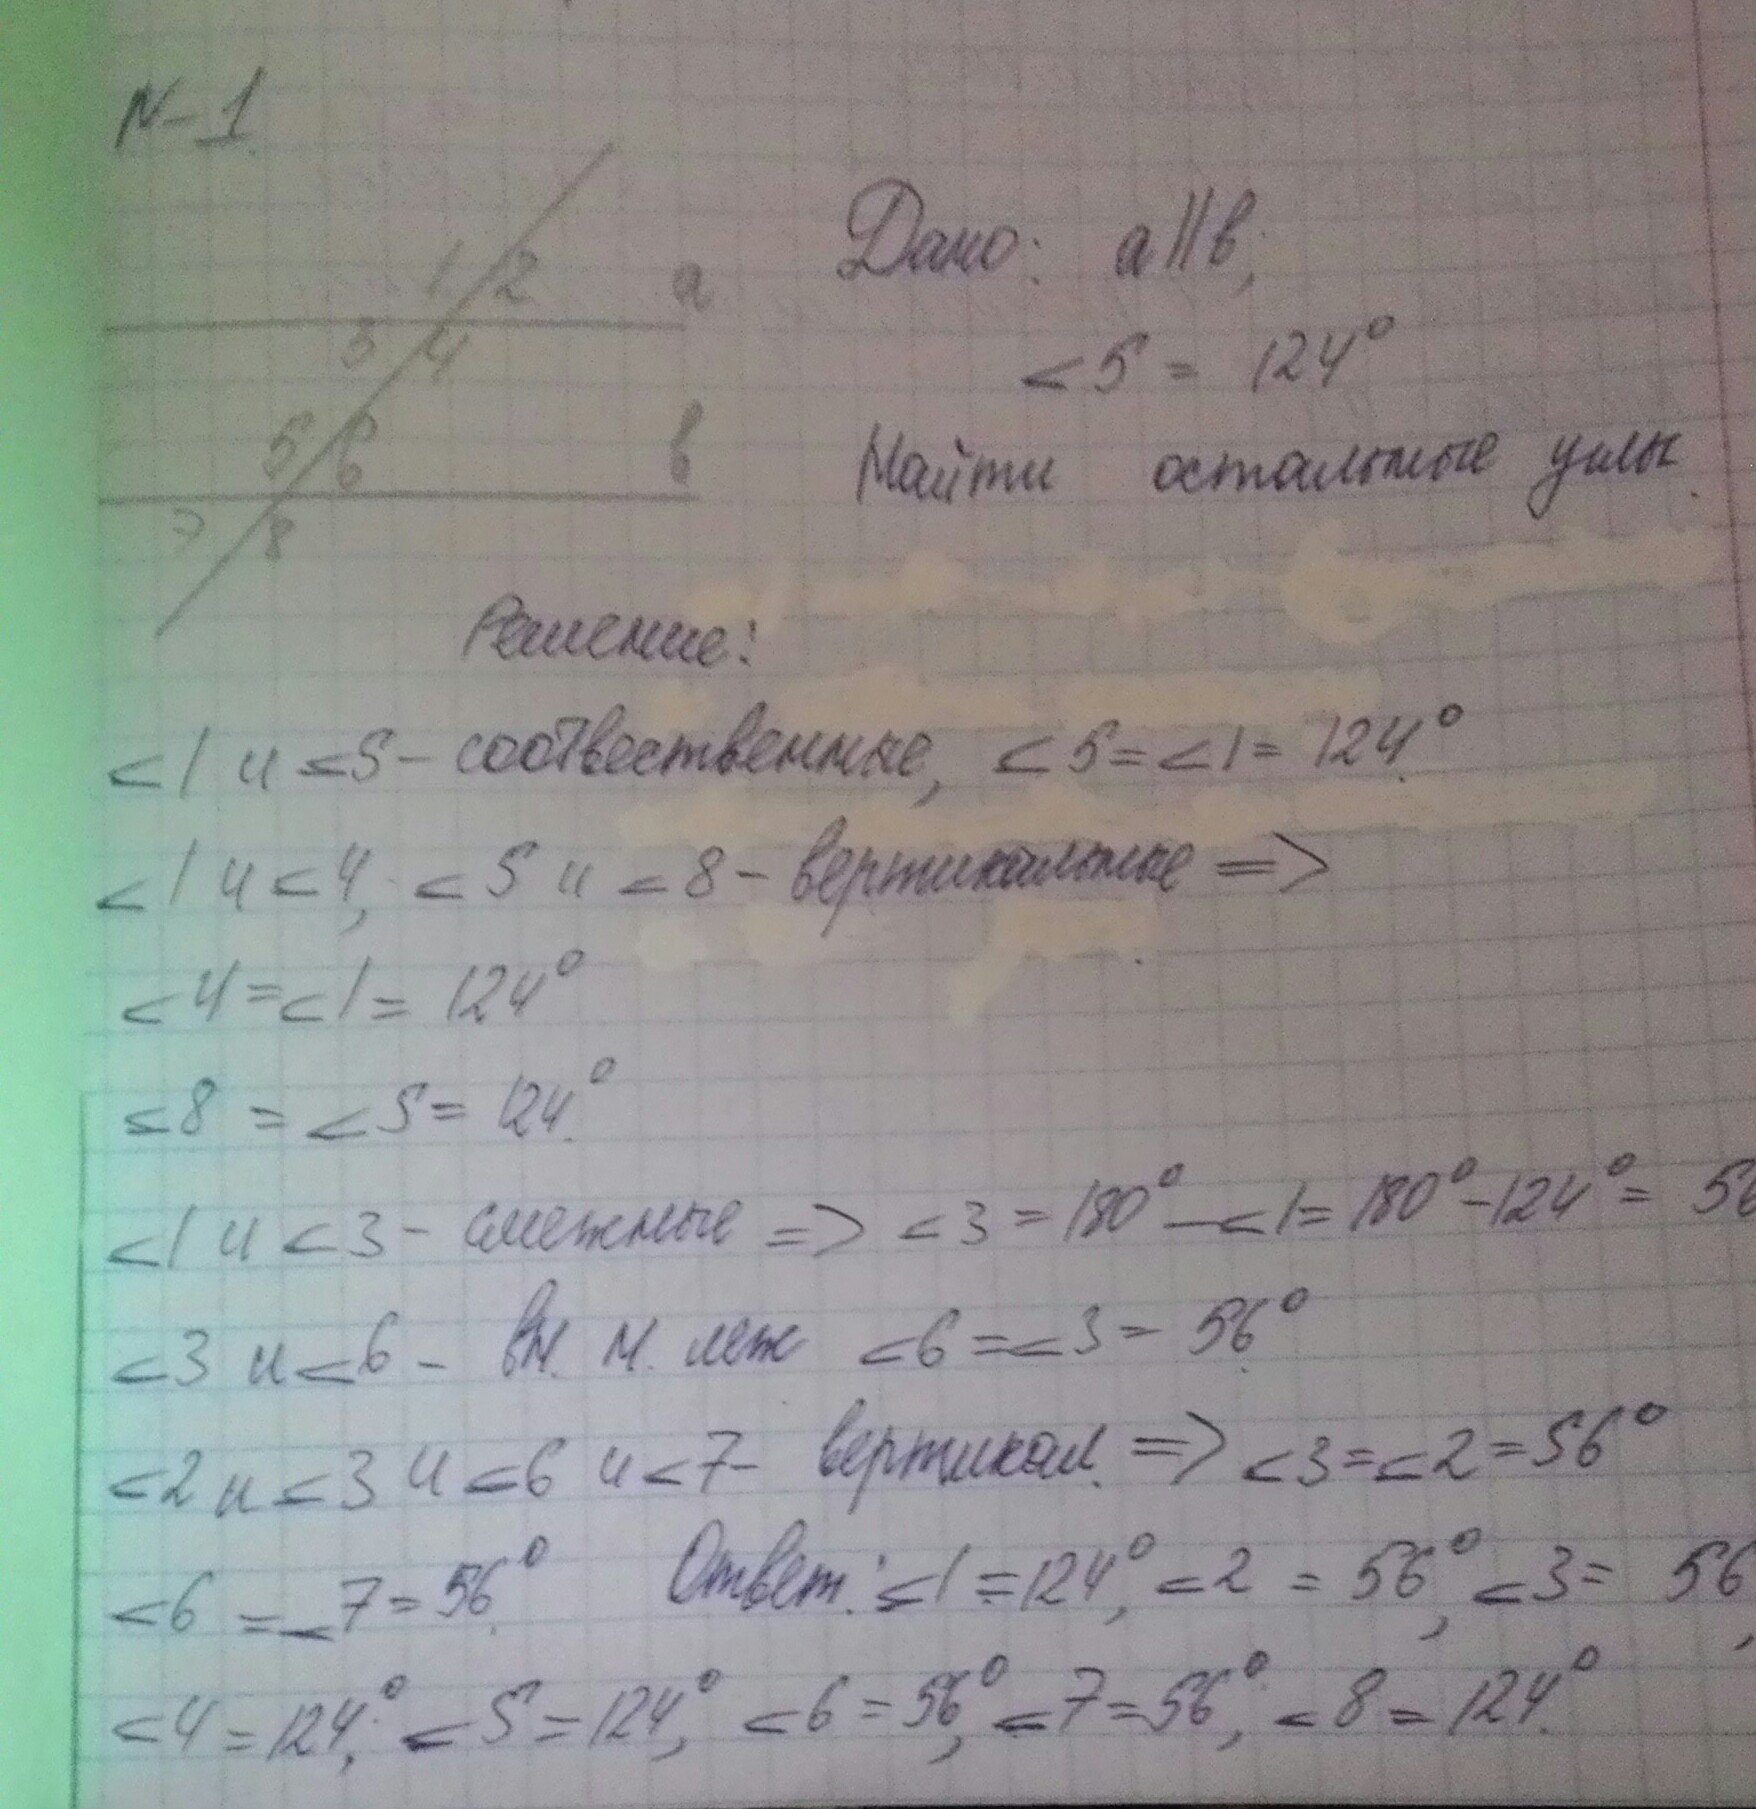 N-1
1 2 a
3 4
5 6 b
7 8
Дано: a||b;
<5 = 124°
Найти остальные углы.
Решение:
<1 и <5 - соотвественные, <5=<1=124°.
<1 и <4, <5 и <8 - вертикальные =>
<4=<1=124°
<8 = <5= 124°.
<1 и <3 - смежные => <3=180°-<1=180°-124°= 56
<3 и <6 - вн. н. леж <6=<3= 56°.
<2 и <3 и <6 и <7- вертикал. => <3=<2=56°
<6 =<7=56°. Ответ: <1=124°, <2 = 56°, <3= 56,
<4=124°, <5=124°, <6=56°, <7=56°, <8=124°.